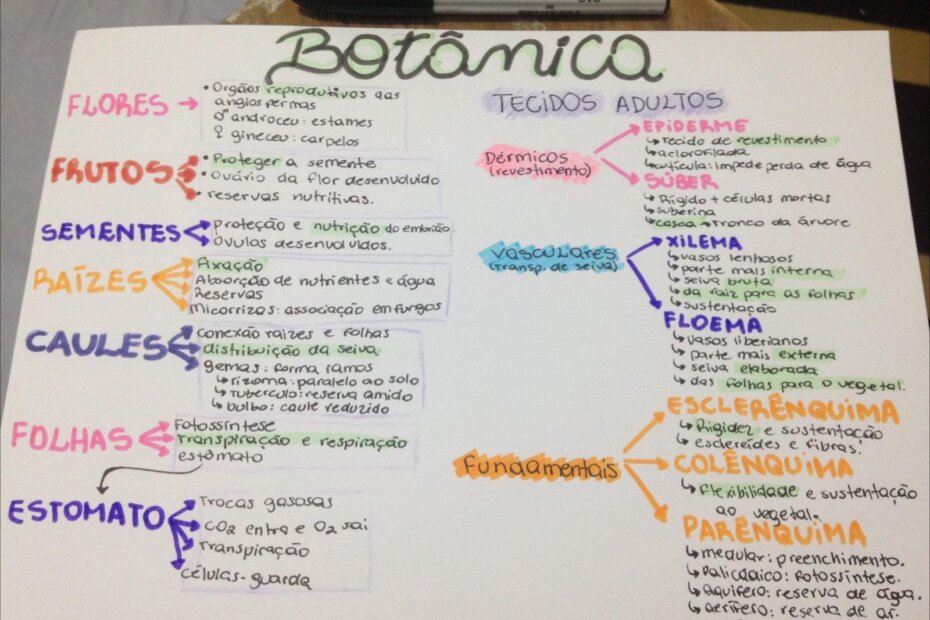 Botânica
FLORES
• Orgãos reprodutivos das
angiospermas
♂ androceu: estames
♀ gineceu: carpelos
FRUTOS
• Proteger a semente
• Ovário da flor desenvolvido.
• reservas nutritivas.
SEMENTES
proteção e nutrição do embrião
Óvulos desenvolvidos.
RAÍZES
Fixação
Absorção de nutrientes e água
Reservas
Micorrizas: associação em fungos
CAULES
conexão raízes e folhas
distribuição da seiva
gemas: forma ramos
↳ rizoma: paralelo ao solo
↳ Tubérculo: reserva amido
↳ bulbo: caule reduzido
FOLHAS
Fotossíntese
Transpiração e respiração
estômato
ESTOMATO
Trocas gasosas
CO2 entra e O2 sai
Transpiração
células-guarda
TECIDOS ADULTOS
Dérmicos
(revestimento)
EPIDERME
↳ Tecido de revestimento
↳ aclorofilada
↳ cutícula: impede perda de água
SÚBER
↳ Rígido + células mortas
↳ suberina
↳ casca → Tronco da árvore
Vasculares
(transp. de seiva)
XILEMA
↳ vasos lenhosos
↳ parte mais interna
↳ seiva bruta
↳ da raiz para as folhas
↳ sustentação
FLOEMA
↳ vasos liberianos
↳ parte mais externa
↳ seiva elaborada
↳ das folhas para o vegetal.
Fundamentais
ESCLERÊNQUIMA
↳ Rigidez e sustentação
↳ esclereídes e fibras
COLÊNQUIMA
↳ Flexibilidade e sustentação
ao vegetal.
PARÊNQUIMA
↳ medular: preenchimento.
↳ Paliçádico: Fotossíntese.
↳ aquífero: reserva de água.
↳ aerífero: reserva de ar.